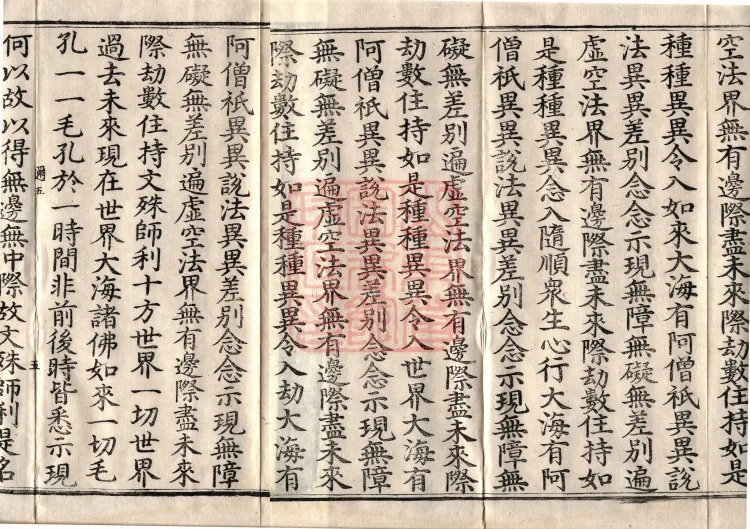 空法界無有邊際盡未來際劫數住持如是
種種異異令入如來大海有阿僧祇異異說
法異異差別念念示現無障無礙無差別遍
虛空法界無有邊際盡未來際劫數住持如
是種種異異念入隨順衆生心行大海有阿
僧祇異異說法異異差別念念示現無障無
礙無差別遍虛空法界無有邊際盡未來際
劫數住持如是種種異異令入世界大海有
阿僧祇異異說法異異差別念念示現無障
無礙無差別遍虛空法界無有邊際盡未來
際劫數住持如是種種異異令入劫大海有
阿僧祇異異說法異異差別念念示現無障
無礙無差別遍虛空法界無有邊際盡未來
際劫數住持文殊師利十方世界一切世界
過去未來現在世界大海諸佛如來一切毛
孔一一毛孔於一時間非前後時皆悉示現
五
何以故以得無邊無中際故文殊師利是名